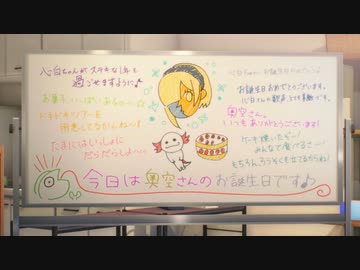 心白ちゃんがステキな1年を
過ごせますように♪
お菓子いっぱいあるの〜☆
ドキドキツアーを
用意してるかんね〜!
たまにはいっしょに
だらだらしよ〜
お誕生日おめでとうございます。
奥空さん。
いつもありがとうございます!
ケーキ焼いたぞー!
みんなで食べるさー!
もちろん、ろうそくも立てるからね!
今日は奥空さんのお誕生日です♪